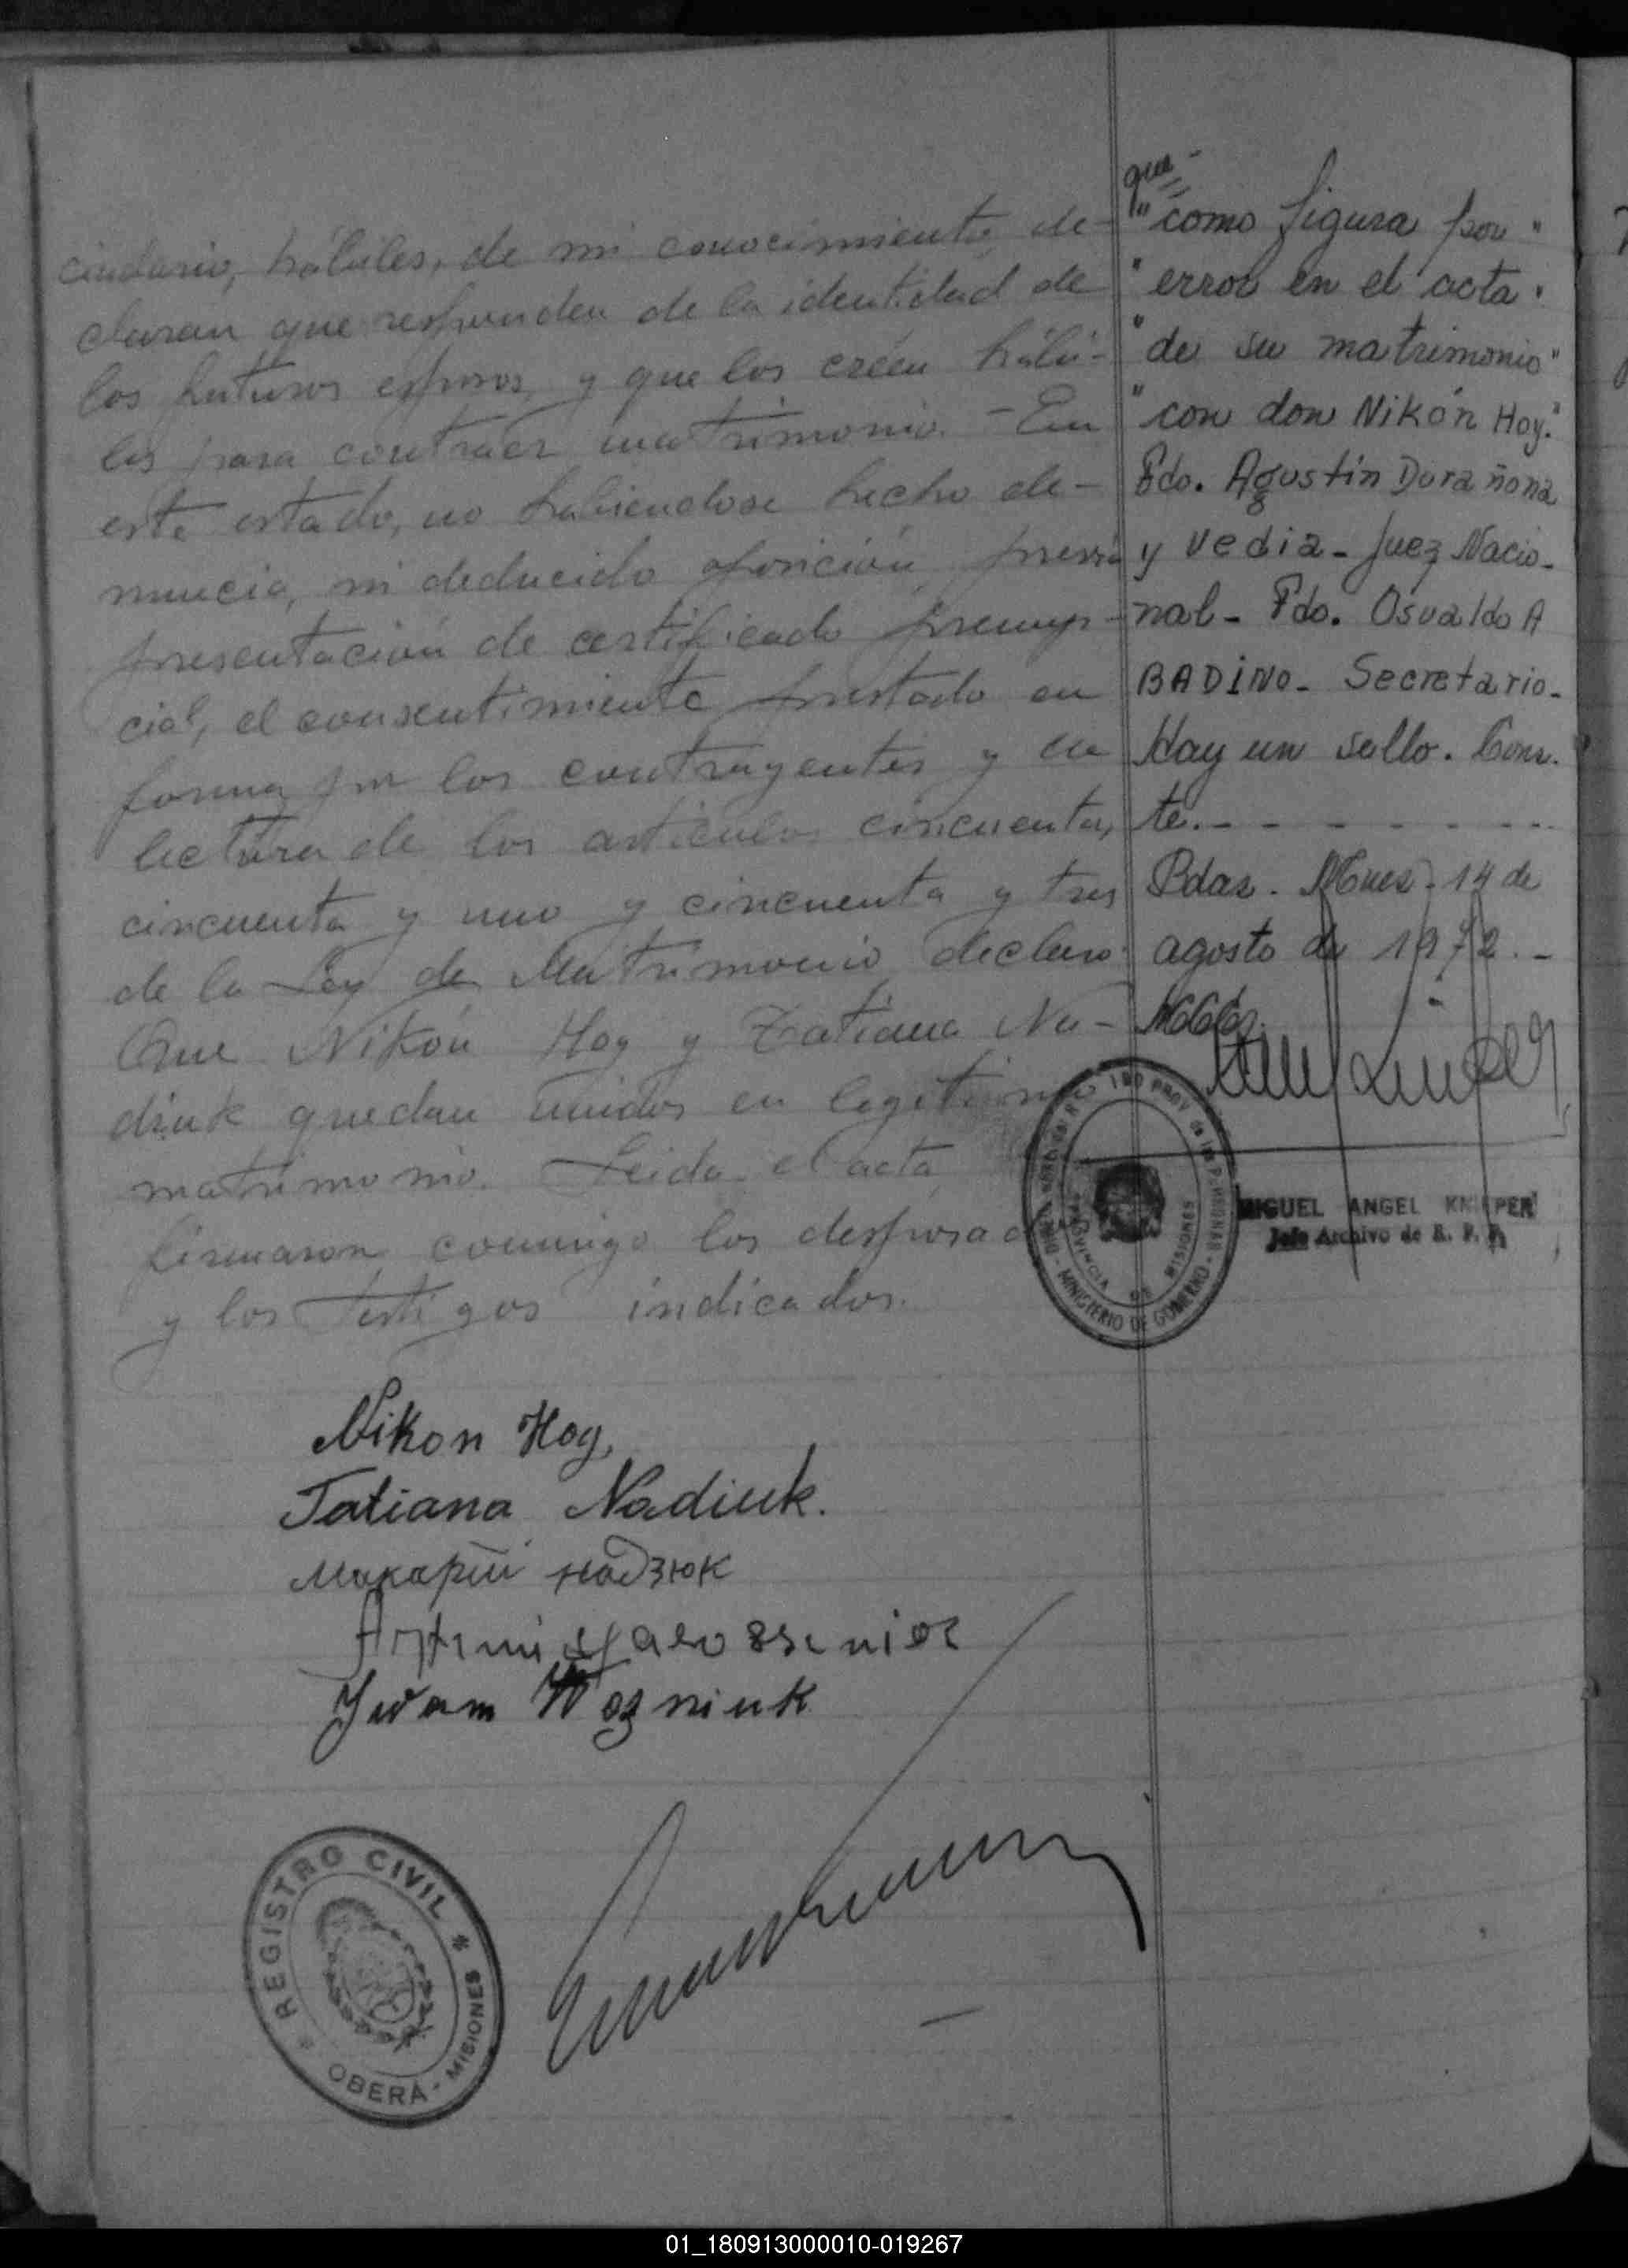 cindario, hábiles, de mi conocimiento de-
claran que responden de la identidad de
los futuros esposos, y que los créen hábi-
les para contraer matrimonio. - En
este estado, no habiendose hecho de-
nuncia, ni deducido oposición, previa
presentación de certificado prenup-
cial, el consentimiento prestado en
forma por los contrayentes y la
lectura de los articulos cincuenta,
cincuenta y uno y cincuenta y tres
de la Ley de Matrimonio declaro
Que Nikón Hoy y Tatiana Na-
diuk quedan unidos en legitimo
matrimonio. Leida el acta
firmaron conmigo los desposados
y los testigos indicados.
Nikon Hoy.
Tatiana Nadiuk.
Макарій надзюк
Iwam Wozniuk
REGISTRO CIVIL
OBERÁ - MISIONES
que
"como figura por"
"error en el acta"
"de su matrimonio"
"con don Nikón Hoy."
Fdo. Agustín Durañona
y Vedia - Juez Nacio-
nal - Fdo. Osvaldo A
BADINO - Secretario -
Hay un sello. Cons-
te. - - - - - - - -
Pdas. Mnes. 14 de
agosto de 1972. -
PROVINCIA DE MISIONES
MINISTERIO DE GOBIERNO
MIGUEL ANGEL KNIPER
Jefe Archivo de R. P. P.
01_180913000010-019267